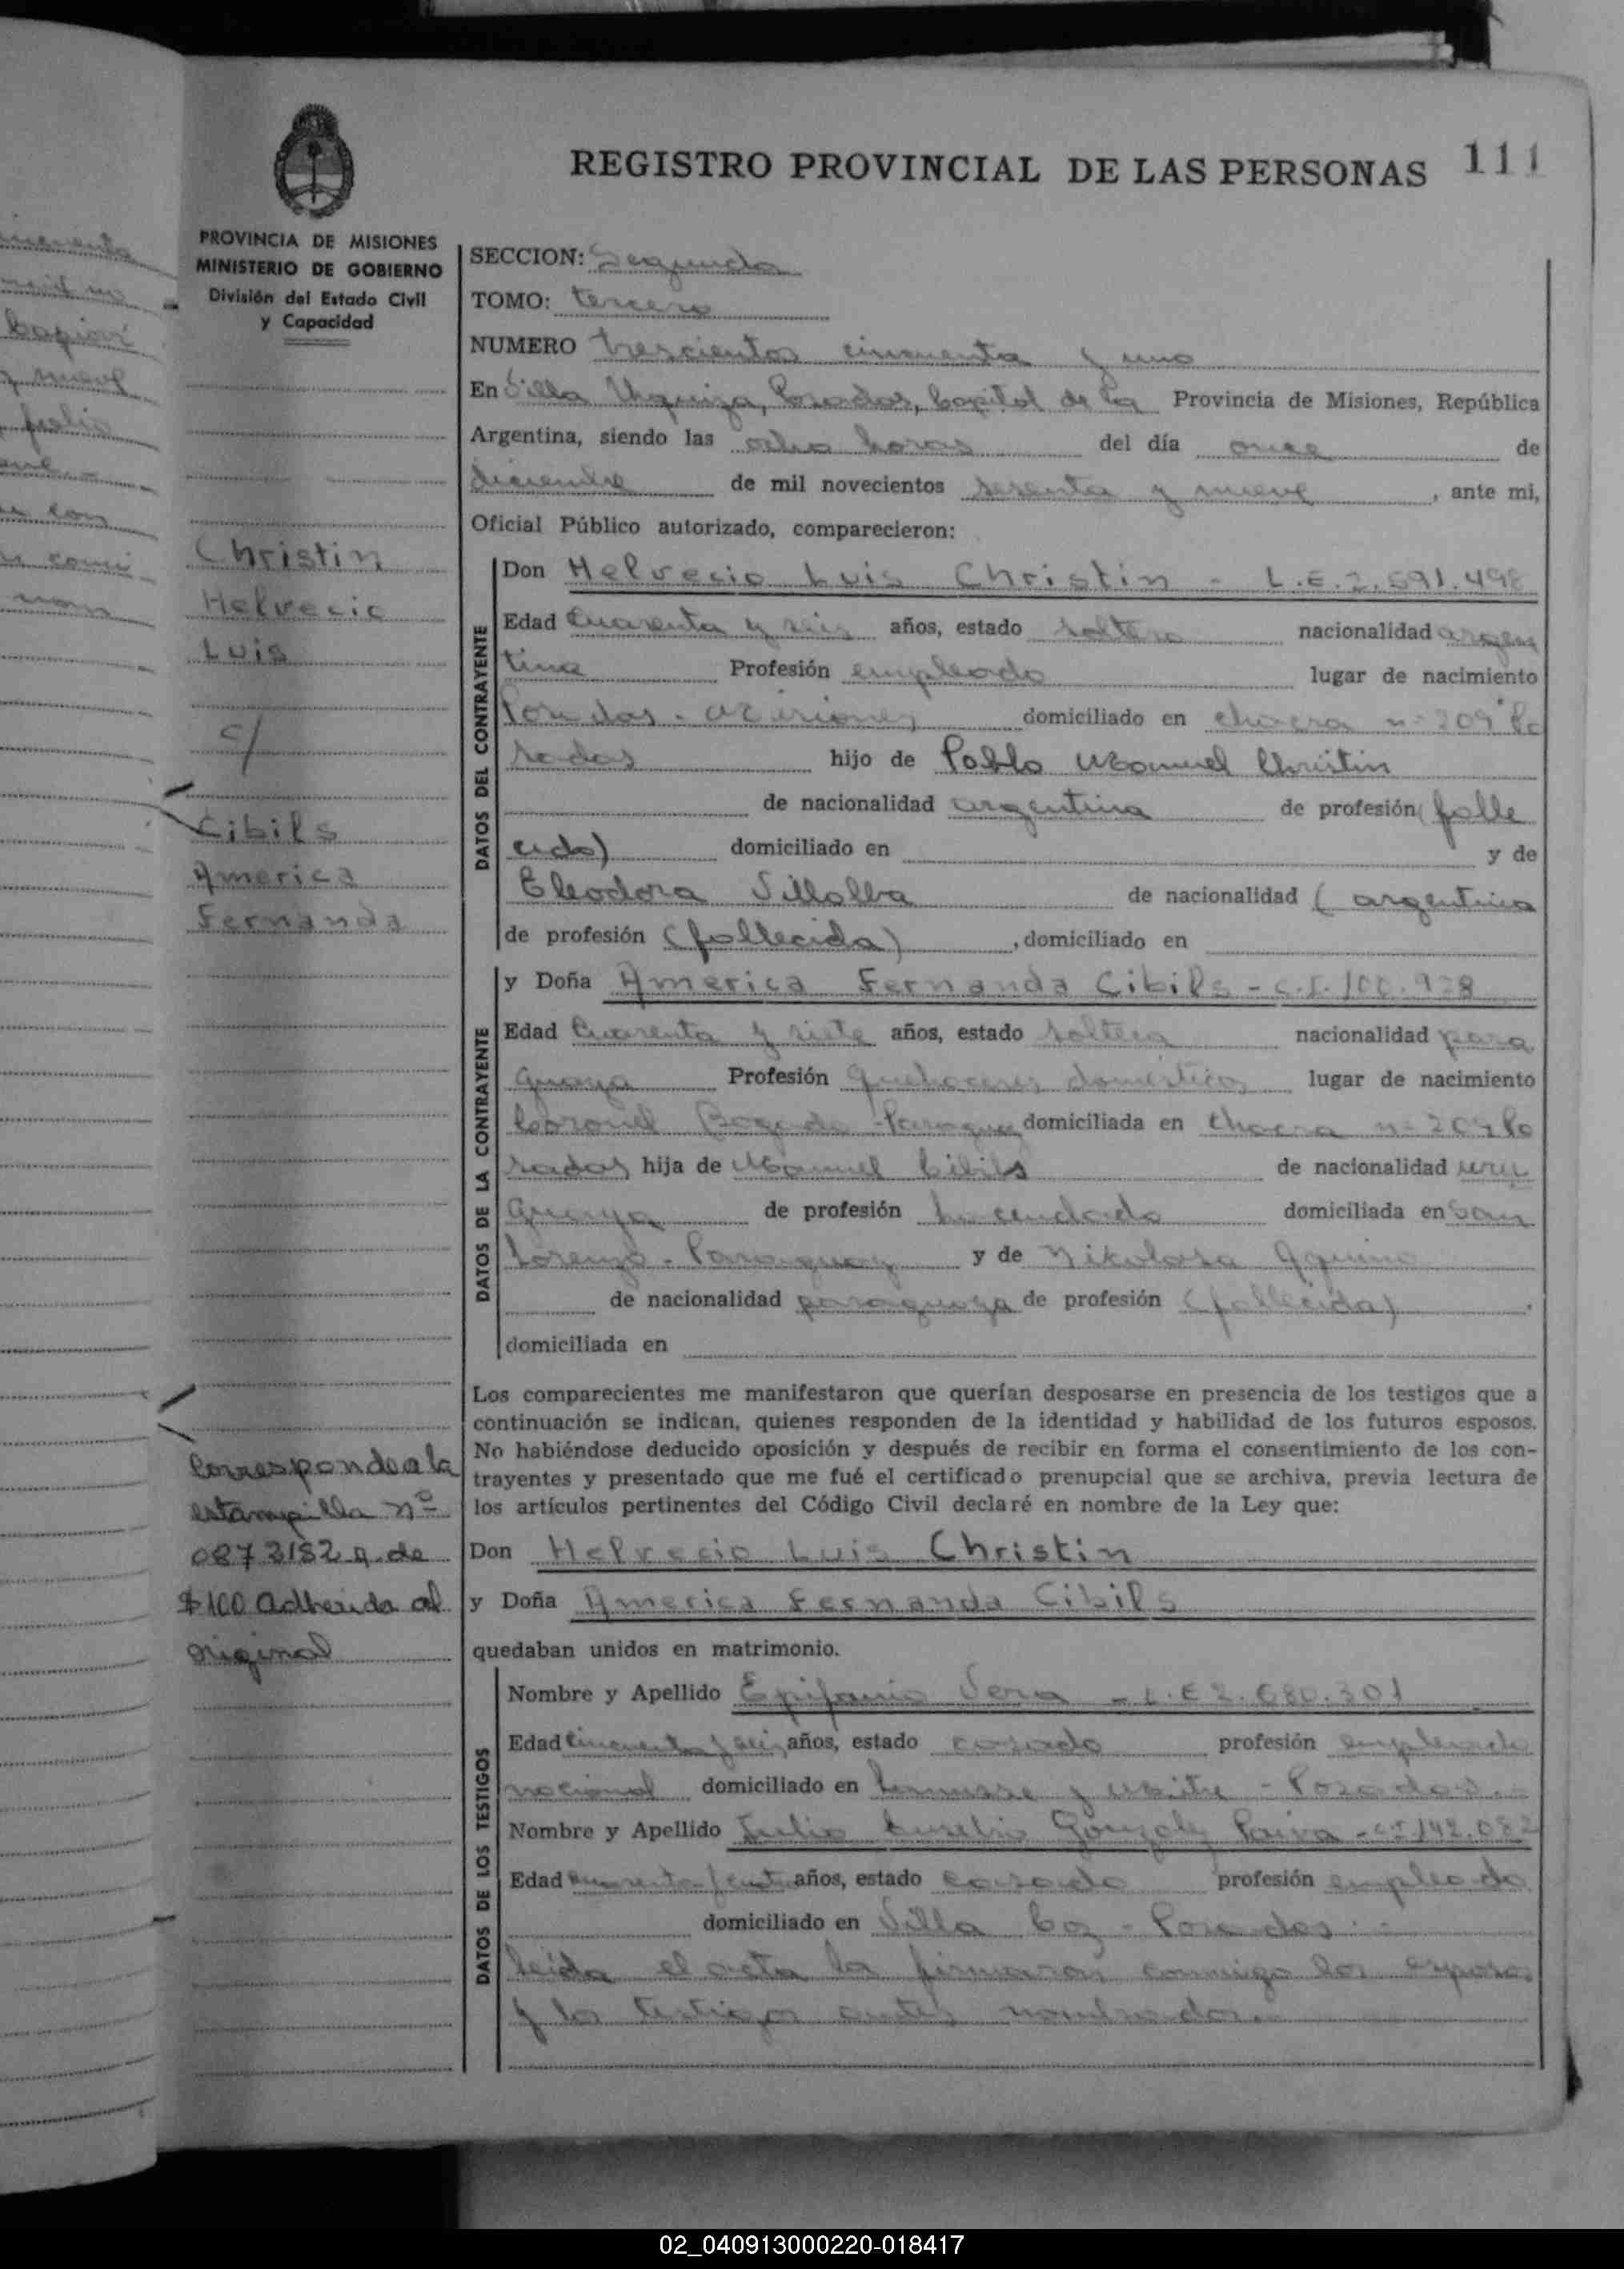 REGISTRO PROVINCIAL DE LAS PERSONAS 111
PROVINCIA DE MISIONES
MINISTERIO DE GOBIERNO
División del Estado Civil
y Capacidad
Christin
Helvecio
Luis
c/
Cibils
America
Fernanda
Corresponde a la
estampilla nº
0873182 q. de
$100 adherida al
original
SECCION: Segunda
TOMO: tercero
NUMERO trescientos cincuenta y uno
En Villa Urquiza, Posadas, Capital de la Provincia de Misiones, República
Argentina, siendo las ocho horas del día once de
diciembre de mil novecientos sesenta y nueve, ante mi,
Oficial Público autorizado, comparecieron:
DATOS DEL CONTRAYENTE
Don Helvecio Luis Christin - L.E.2.591.498
Edad cuarenta y seis años, estado soltero nacionalidad argen
tina Profesión empleado lugar de nacimiento
Posadas - Misiones domiciliado en chacra nº 209 Po
sadas hijo de Pablo Manuel Christin
de nacionalidad argentina de profesión (falle
cido) domiciliado en y de
Eleodora Villalba de nacionalidad ( argentina
de profesión (fallecida), domiciliado en
DATOS DE LA CONTRAYENTE
y Doña America Fernanda Cibils - C.I.100.928
Edad cuarenta y siete años, estado soltera nacionalidad para
guaya Profesión quehaceres domésticos lugar de nacimiento
Coronel Bogado - Paraguay domiciliada en chacra nº 209 Po
sadas hija de Manuel Cibils de nacionalidad uru
guaya de profesión hacendado domiciliada en San
Lorenzo - Paraguay y de Nikolasa Aquino
de nacionalidad paraguaya de profesión (fallecida).
domiciliada en
Los comparecientes me manifestaron que querían desposarse en presencia de los testigos que a
continuación se indican, quienes responden de la identidad y habilidad de los futuros esposos.
No habiéndose deducido oposición y después de recibir en forma el consentimiento de los con-
trayentes y presentado que me fué el certificado prenupcial que se archiva, previa lectura de
los artículos pertinentes del Código Civil declaré en nombre de la Ley que:
Don Helvecio Luis Christin
y Doña America Fernanda Cibils
quedaban unidos en matrimonio.
DATOS DE LOS TESTIGOS
Nombre y Apellido Epifanio Vera - L.E 2.680.301
Edad cincuenta y seis años, estado casado profesión empleado
nacional domiciliado en y Mitre - Posadas.-
Nombre y Apellido Julio Aurelio Gonzalez Paiva - C.I 142.082
Edad cuarenta y cuatro años, estado casado profesión empleado
domiciliado en Villa - Posadas.-
Leida el acta la firmaron conmigo los esposos
y los testigos antes nombrados.
02_040913000220-018417